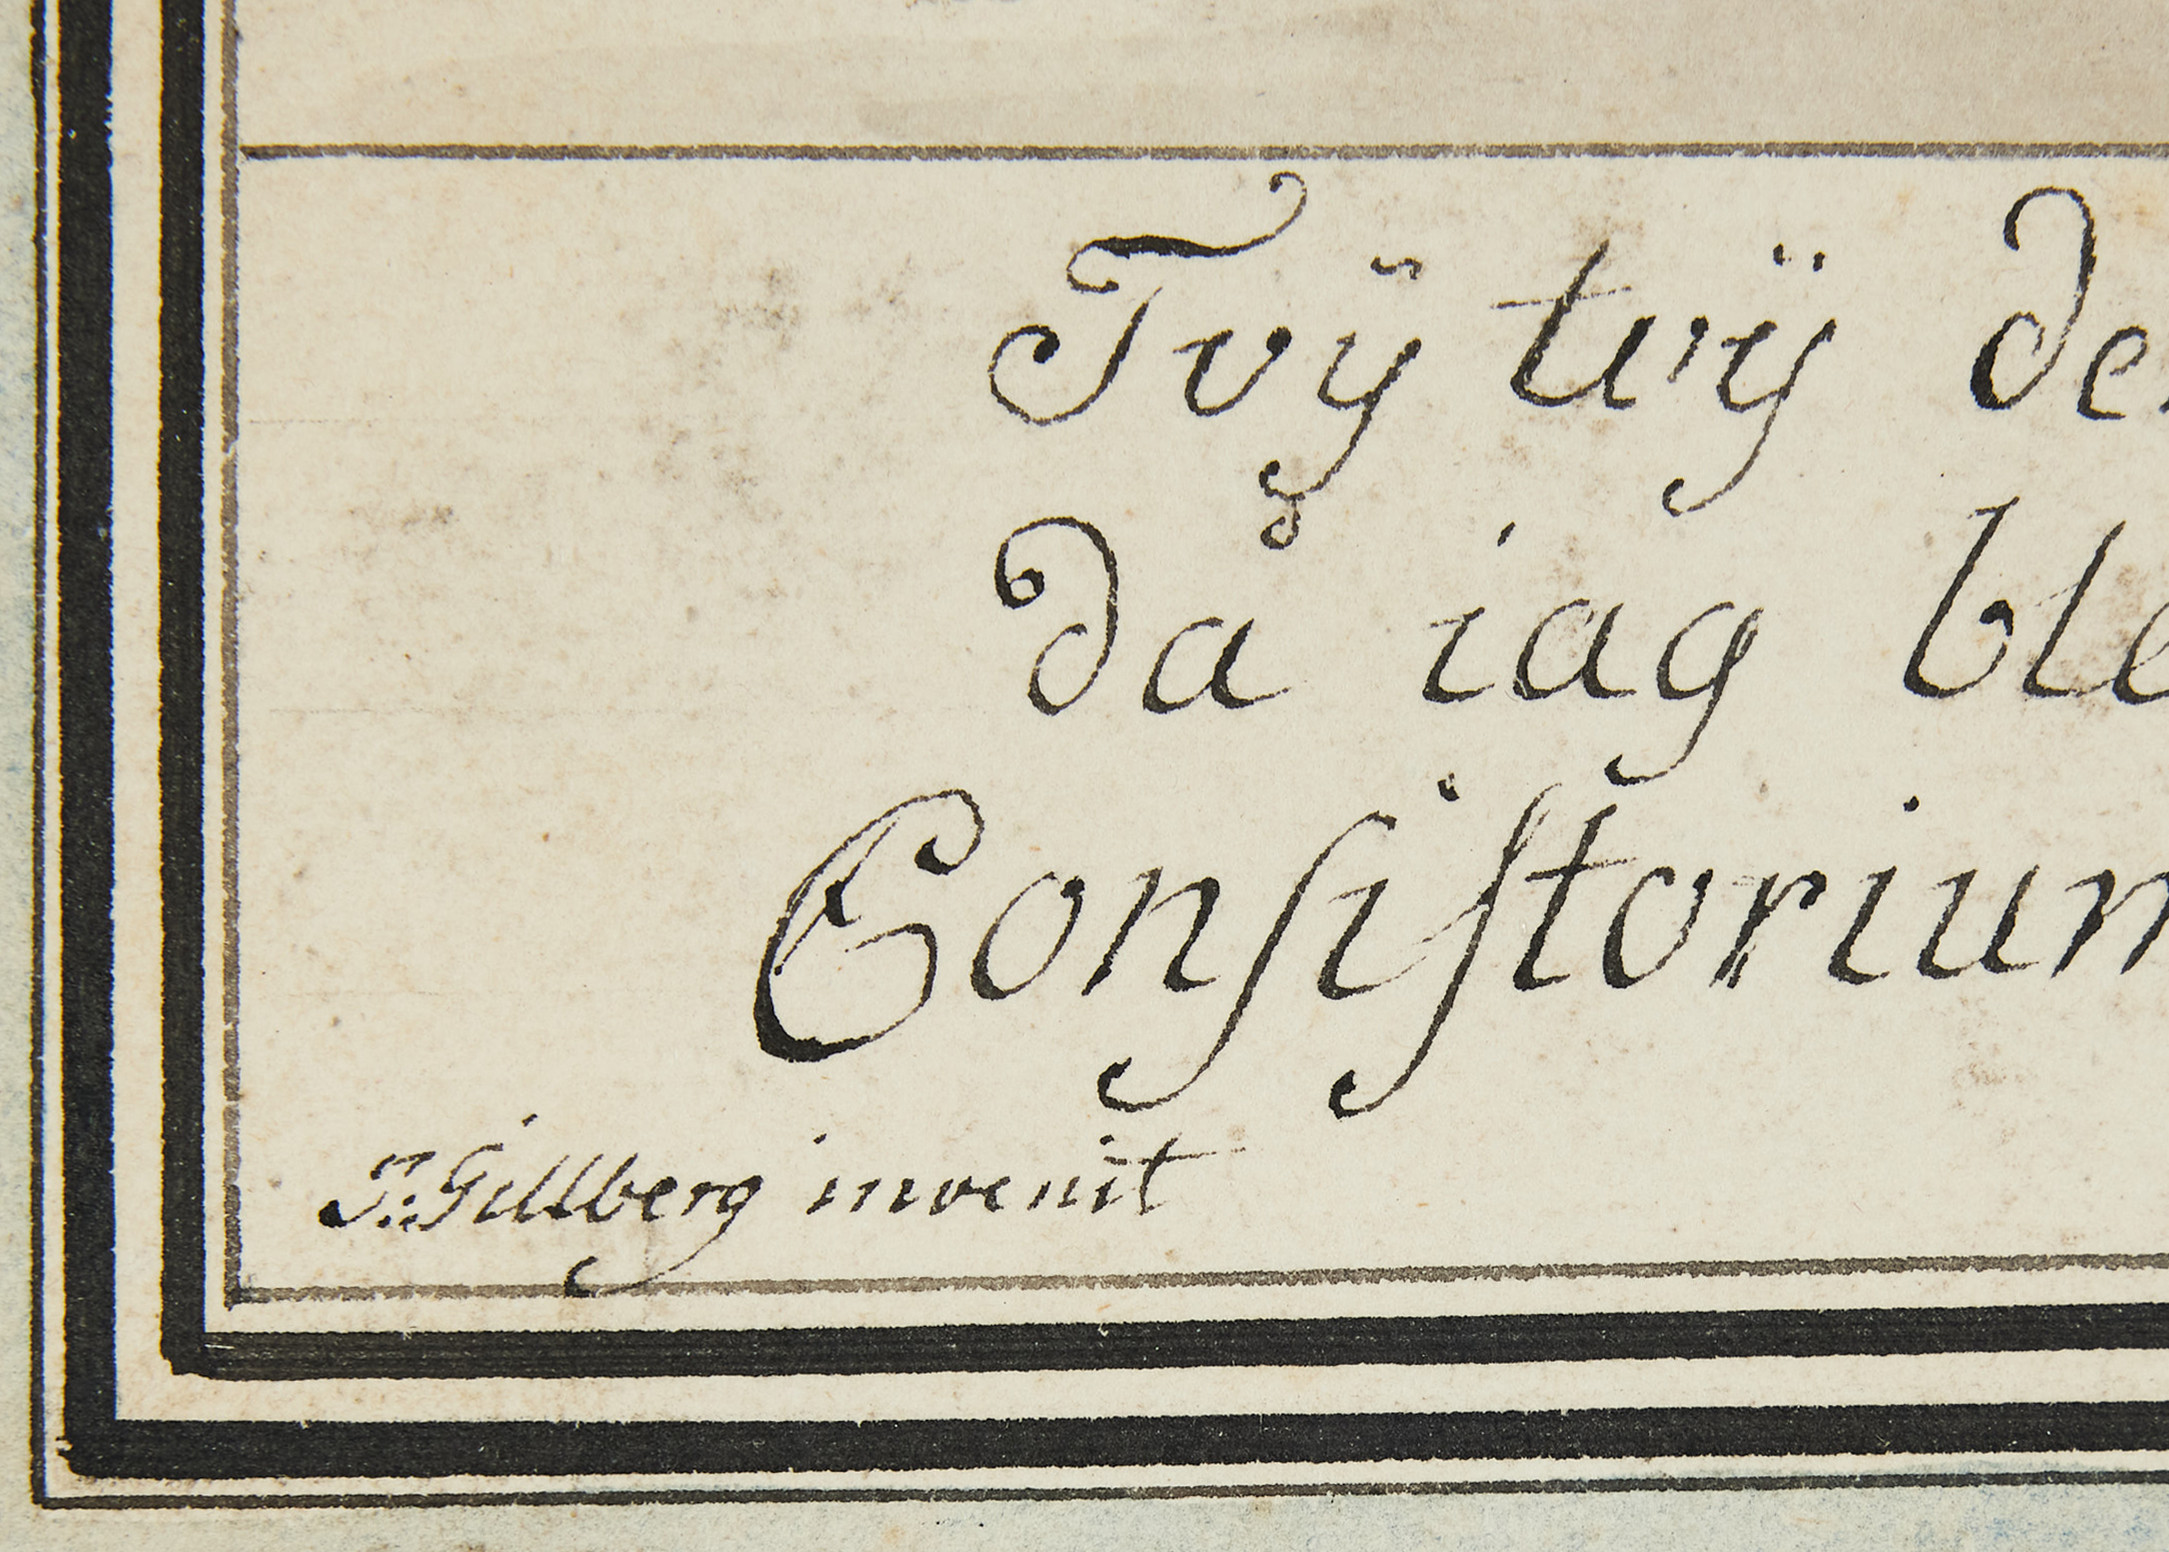 Tvÿ tvÿ de
då iag ble
Conſiſtorium
J: Gillberg invenit